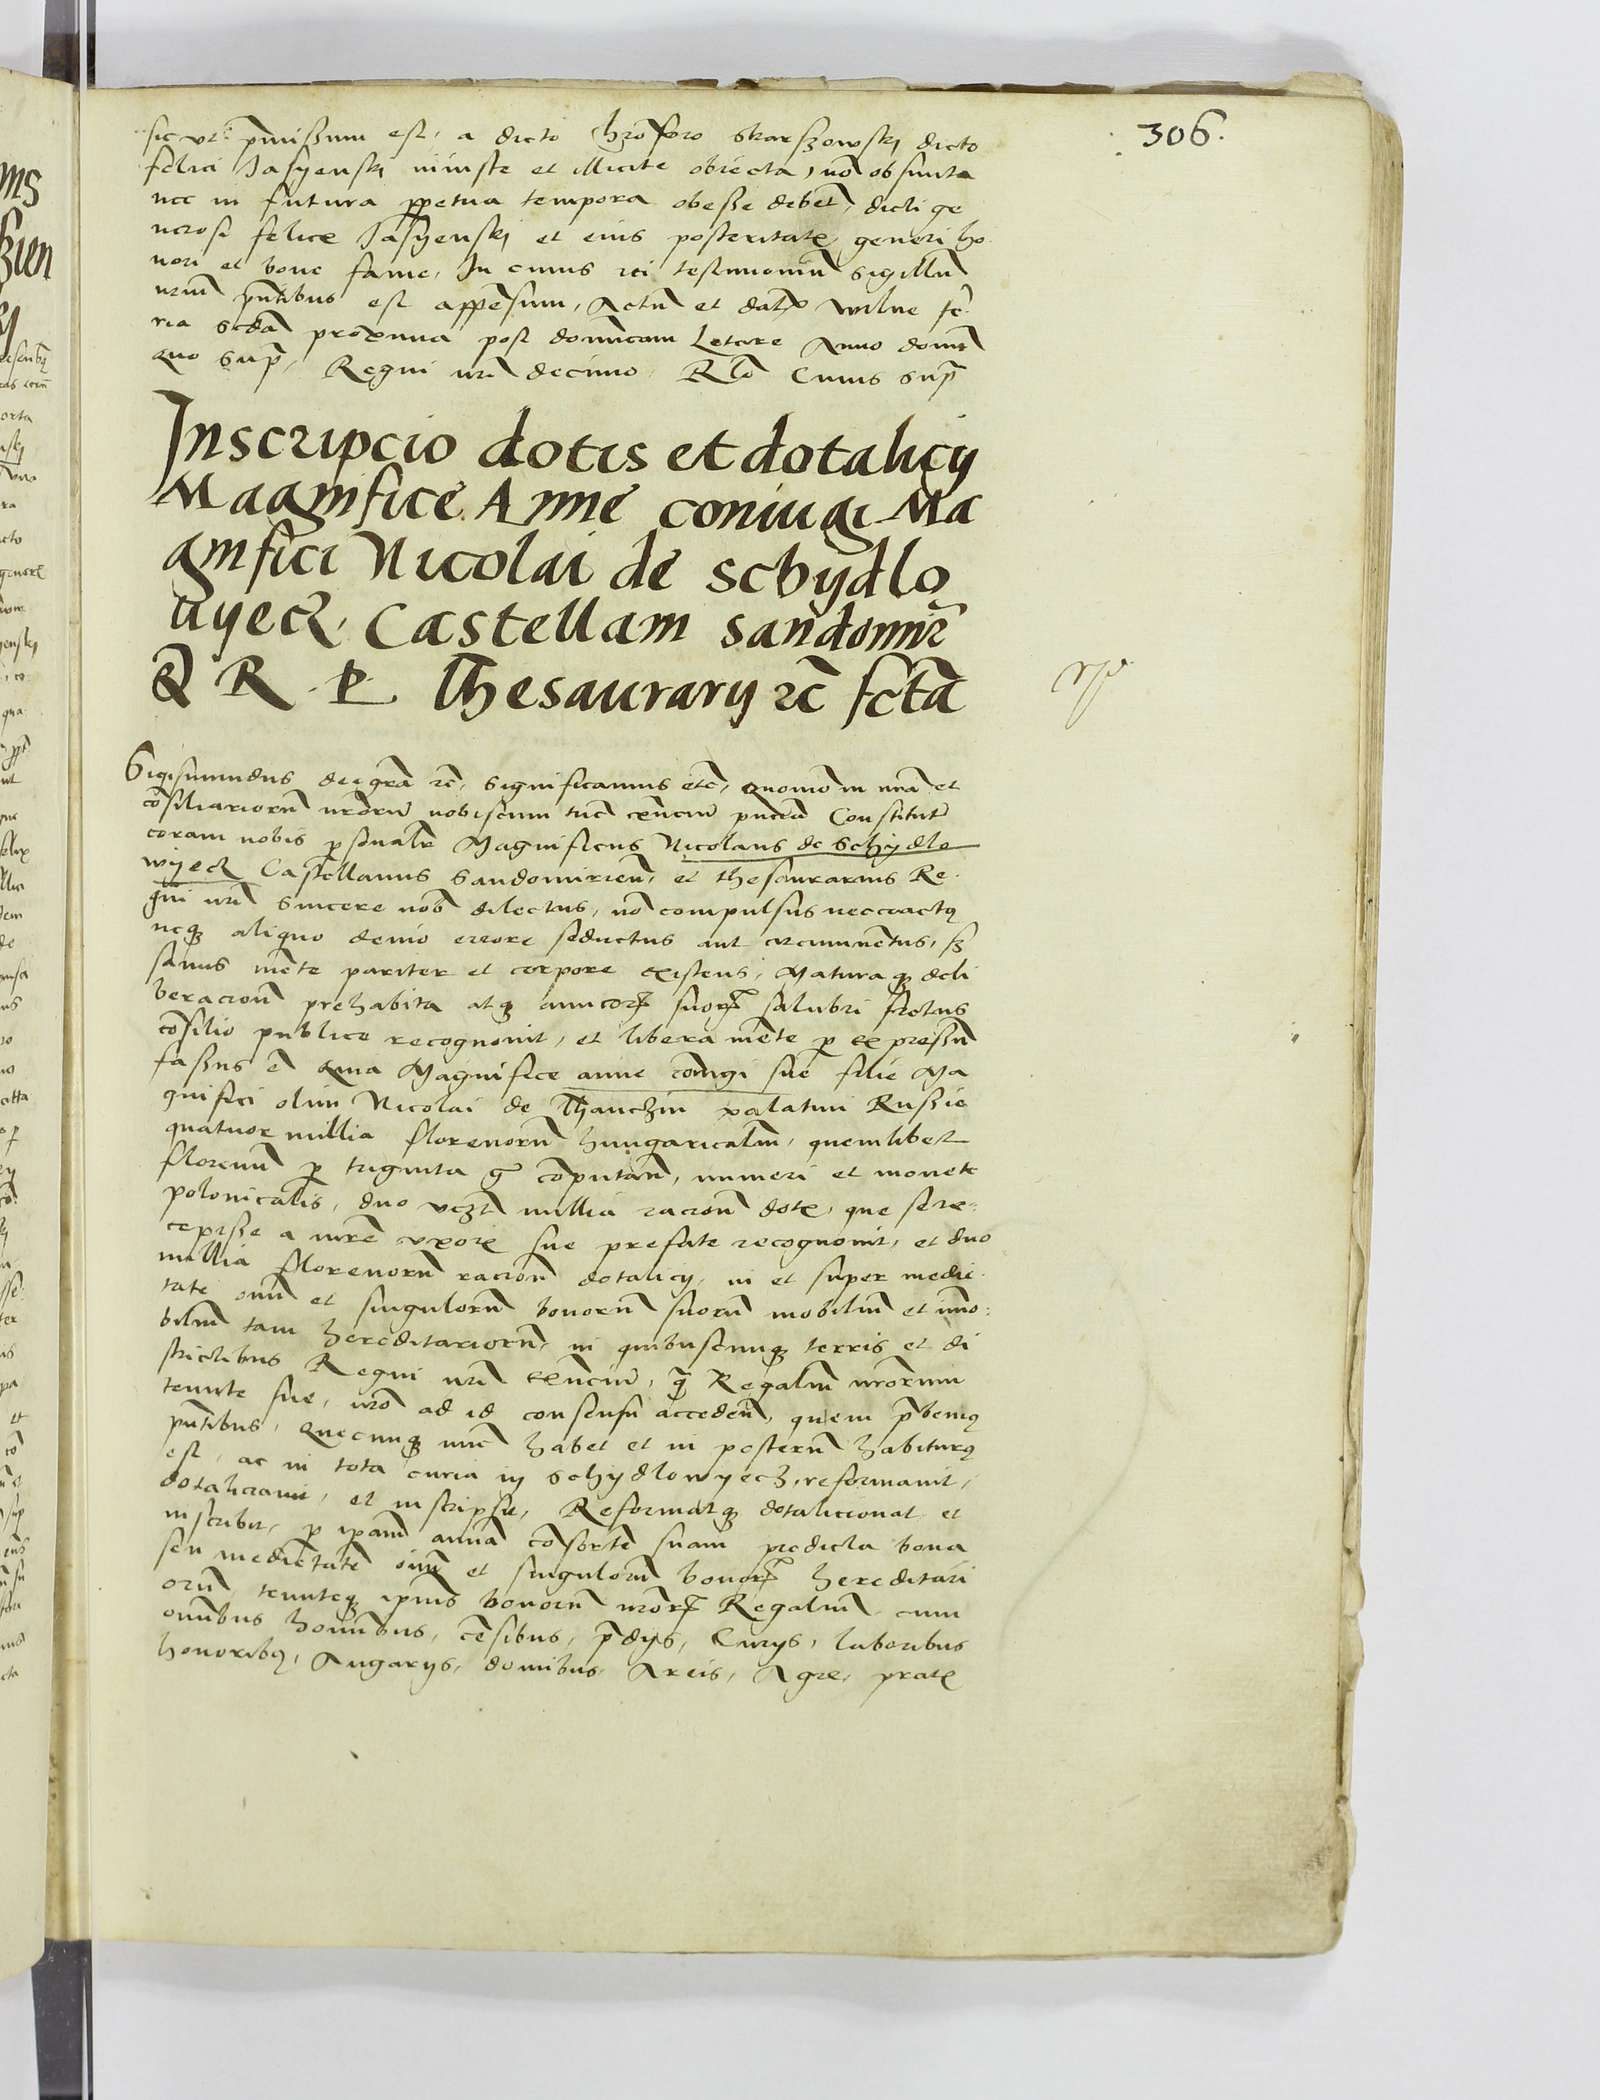 306.
sic vt p̄missum est, a dicto Skarszowski dicto
felici Jasyenski iniuste et illicite obiecta, nō obsunt
nec in futura ꝑpetua tempora obesse debēt, dicti ge
nerosi felic Jasyenski et eius posteritat generi ho
nori et bone fame, In cuius rei testimoniū sigillū
nrm̄ pn̄tibus est appēsum, Actū et dat wilne fe
ria scdā proxima post dominicam Letare Anno domī
quo sup̄, Regni nrī decimo, Rlō Cuius sup̄
Inscripcio dotis et dotalicij
Magnifice Anne coniugi Ma
gnifici Nicolai de Schydlo
uyecz, Castellani Sandomir̄
Thesaurarij rc̄ fctā
Sigismundus dei grā rc̄, Significamus etc̄, quomō in nrā et
cōsiliariorū nrōrū nobiscum tūc exn̄ciū pn̄ciā Constitut
coram nobis ꝑsonalr Magnificus Nicolaus de Schydlo
wyecz Castellanus Sandomirien̄, et thesaurarius Re
gni nrī sincere nob̄ dilectus, nō compulsus nec coactꝯ
neqꝫ aliquo deuio errore seductus aut circumuētus, sꝫ
sanus mēte pariter et corpore existens, Maturaqꝫ deli
beracion̄ prehabita atqꝫ amicoꝝ suoꝝ salubri fretus
cōsilio publice recognouit, et libera mēte ꝑ expressū
fassus ē Quia Magnifice anne cōiugi sue filie Ma
gnifici olim Nicolai de Thanczin palatini Russie
quatuor millia florenorū hungaricaliū, quemlibet
florenū ꝑ triginta gr̄ cōputan̄, numeri et monete
polonicalis, duo vcꝫt millia racion̄ dot, que se re
cepisse a mrē vxor sue prefate recognouit, et duo
millia florenorū racion̄ dotalicij, in et super medie
tate oīm et singulorū bonorū suorū mobiliū et īmo
biliū tam hereditariorū, in quibuscumqꝫ terris et di
strictibus Regni nrī exn̄ciū, q̄ Regaliū nrōrum
tenute sue, nrō ad id consensu acceden̄, quem p̄bemꝯ
pn̄tibus, Quecumqꝫ nūc habet et in posterū habiturꝯ
est, ac in tota curia in Schydlowyecz, reformauit,
dotaliciauit, et inscripsit, Reformatqꝫ dotalicionat et
inscribit, ꝑ ipam̄ annā cōsortē suam predicta bona
seu medietatē oīm et singulorū bonoꝝ hereditari
orū, tenuteqꝫ ipius bonorū nrōꝝ Regaliū cum
omībus hominibus, cēsibus, p̄dijs, Curijs, laboribus
honoribꝯ, Angarijs, domibus, Areis, Agr, prat